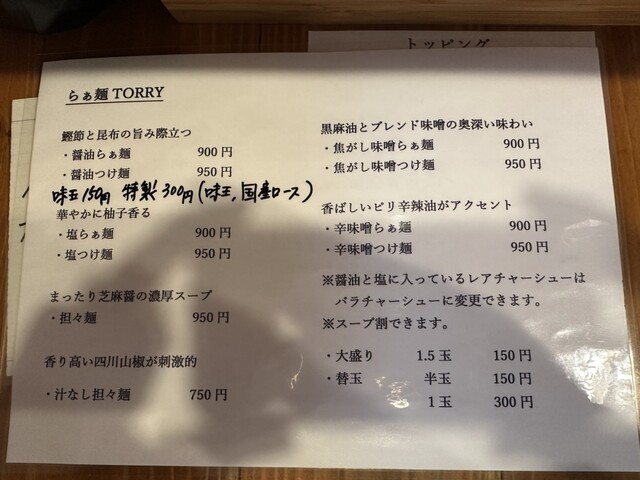 トッピング
らぁ麺 TORRY
鰹節と昆布の旨み際立つ
・醤油らぁ麺 900 円
・醤油つけ麺 950 円
味玉150円 特製300円(味玉,国産ロース)
華やかに柚子香る
・塩らぁ麺 900 円
・塩つけ麺 950 円
まったり芝麻醤の濃厚スープ
・担々麺 950 円
香り高い四川山椒が刺激的
・汁なし担々麺 750 円
黒麻油とブレンド味噌の奥深い味わい
・焦がし味噌らぁ麺 900 円
・焦がし味噌つけ麺 950 円
香ばしいピリ辛辣油がアクセント
・辛味噌らぁ麺 900 円
・辛味噌つけ麺 950 円
※醤油と塩に入っているレアチャーシューは
バラチャーシューに変更できます。
※スープ割できます。
・大盛り 1.5 玉 150 円
・替玉 半玉 150 円
1 玉 300 円